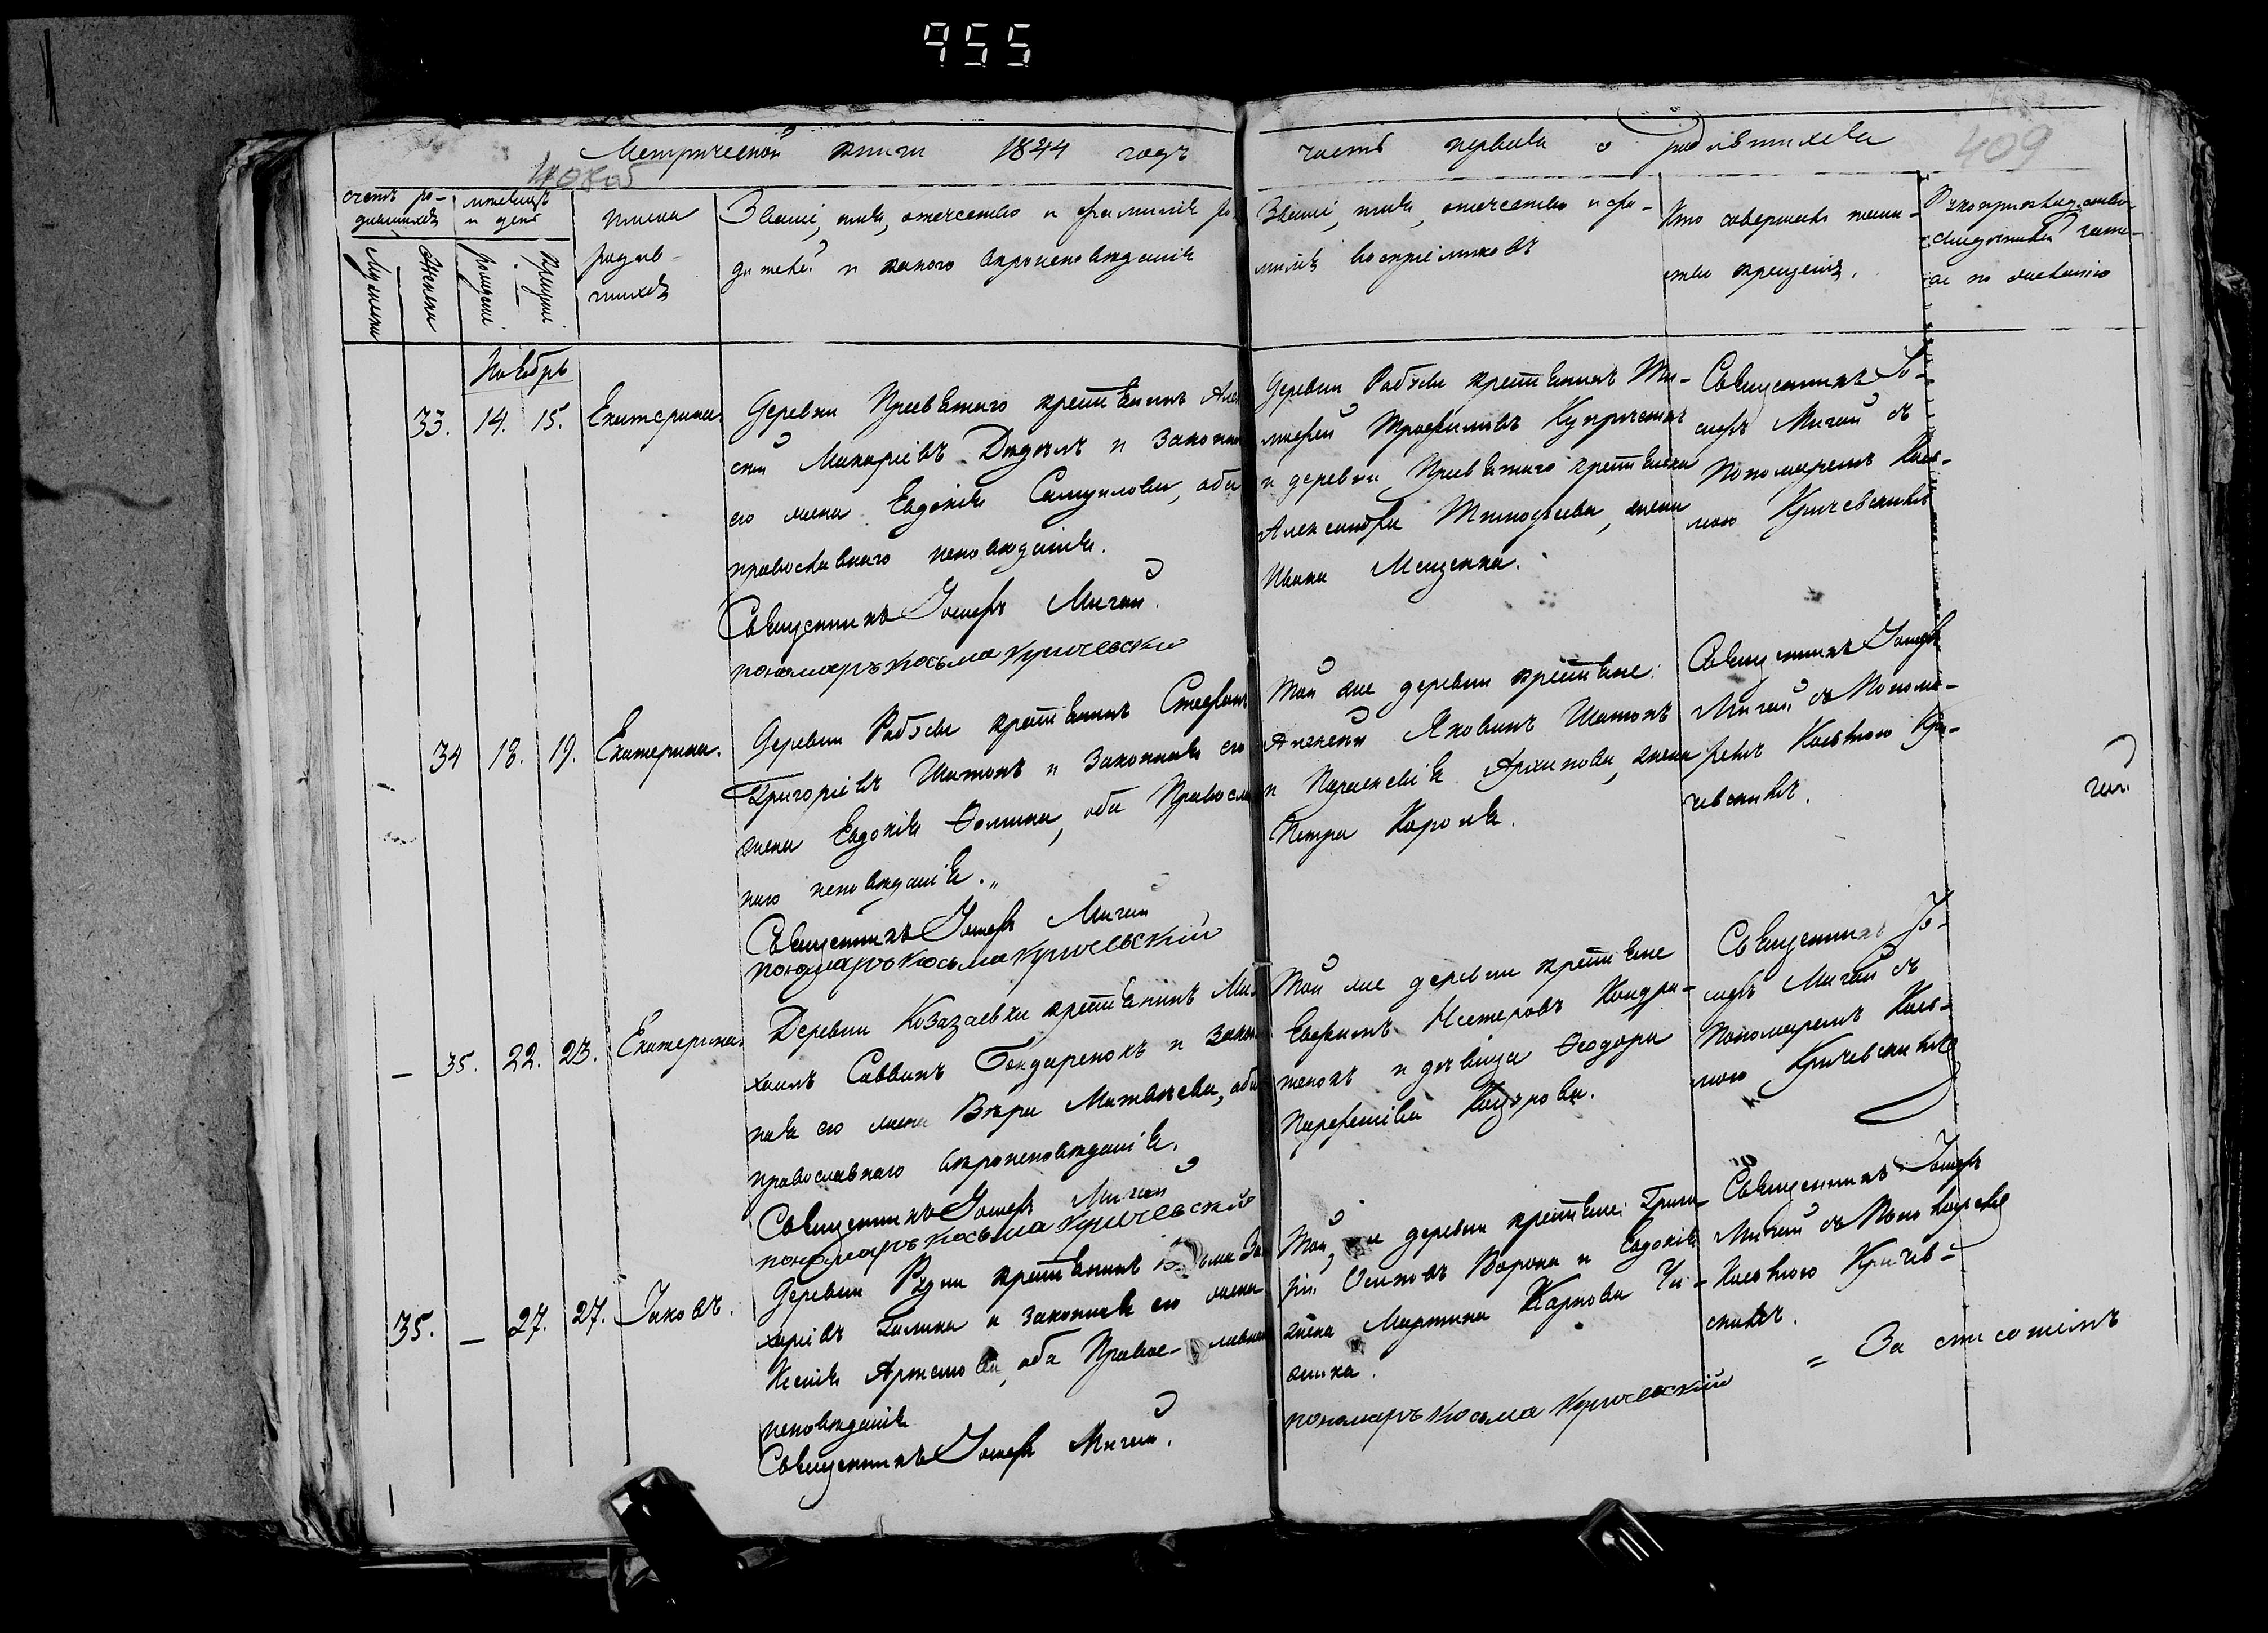 955
Метрической книги 1844 годъ
часть первая о родившихся
408об
409
счетъ ро-
дившихся
мѣсяцъ
и день
Мужеска
Женска
рожденія
крещенія
имена
родив-
шихся
Званіе, имя, отчество и фамилія ро-
дителей и какого вѣроисповѣданія
Званіе, имя, отчество и фа-
милія воспріемниковъ
Кто совершалъ таин-
ство крещенія.
Рукоприкладство
свидѣтелей
по желанію
Ноябрь
33. 14. 15. Екатерина.
Деревни Пресвѣтаго крестьянинъ Алек-
сѣй Макаріевъ Дядылъ и законная
его жена Евдокія Самуилова, оба
православнаго исповѣданія.
Священникъ Іосифъ Мигай.
пономаръ Косьма Кричевскій
Деревни Рабѣевки крестьянинъ Ти-
мофей Трофимовъ Купричонъ
и деревни Пресвѣтаго крестьянка
Александра Тимофеева, жена
Ивана Мещенка.
Священникъ Іо-
сифъ Мигай съ
Пономаремъ Кось-
мою Кричевскимъ
34 18. 19. Екатерина.
Деревни Рабѣевки крестьянинъ Стефанъ
Григоріевъ Шатонъ и законная его
жена Евдокія Ѳомина, оба Правосла-
наго исповѣданія.
Священникъ Іосифъ Мигай
пономаръ Косьма Кричевский
Той же деревни крестьяне:
Алексѣй Яковинъ Шатонъ
и Параскевія Архипова, жена
Петра Короля.
Священникъ Іосифъ
Мигай съ Понома-
ремъ Косьмою Кри-
чевскимъ.
35. 22. 23. Екатерина.
Деревни Козазаевки крестьянинъ Ми-
хаилъ Саввинъ Бондаренокъ и закон-
ная его жена Вѣра Матвѣева, оба
православнаго вѣроисповѣданія.
Священникъ Іосифъ Мигай
пономаръ Косьма Кричевский
Той же деревни крестьяне
Евфимъ Нестеровъ Кондра-
тенокъ и дѣвица Ѳеодора
Парфеніева Коцурова.
Священникъ Іо-
сифъ Мигай съ
Пономаремъ Кось-
мою Кричевскимъ
35. 27. 27. Іаковъ.
Деревни Рудни крестьянинъ Козьма За-
харіевъ Галина и законная его жена
Ксенія Артемова, оба Правос-лавнаго
исповѣданія
Священникъ Іосифъ Мигай.
Той же деревни крестьяне: Григо-
рій Осиповъ Ворона и Евдокія
жена Мартина Карпова Чи-
жика.
пономаръ Косьма Кричевский
Священникъ Іосифъ
Мигай съ Пономаремъ
Косьмою Кричев-
скимъ.